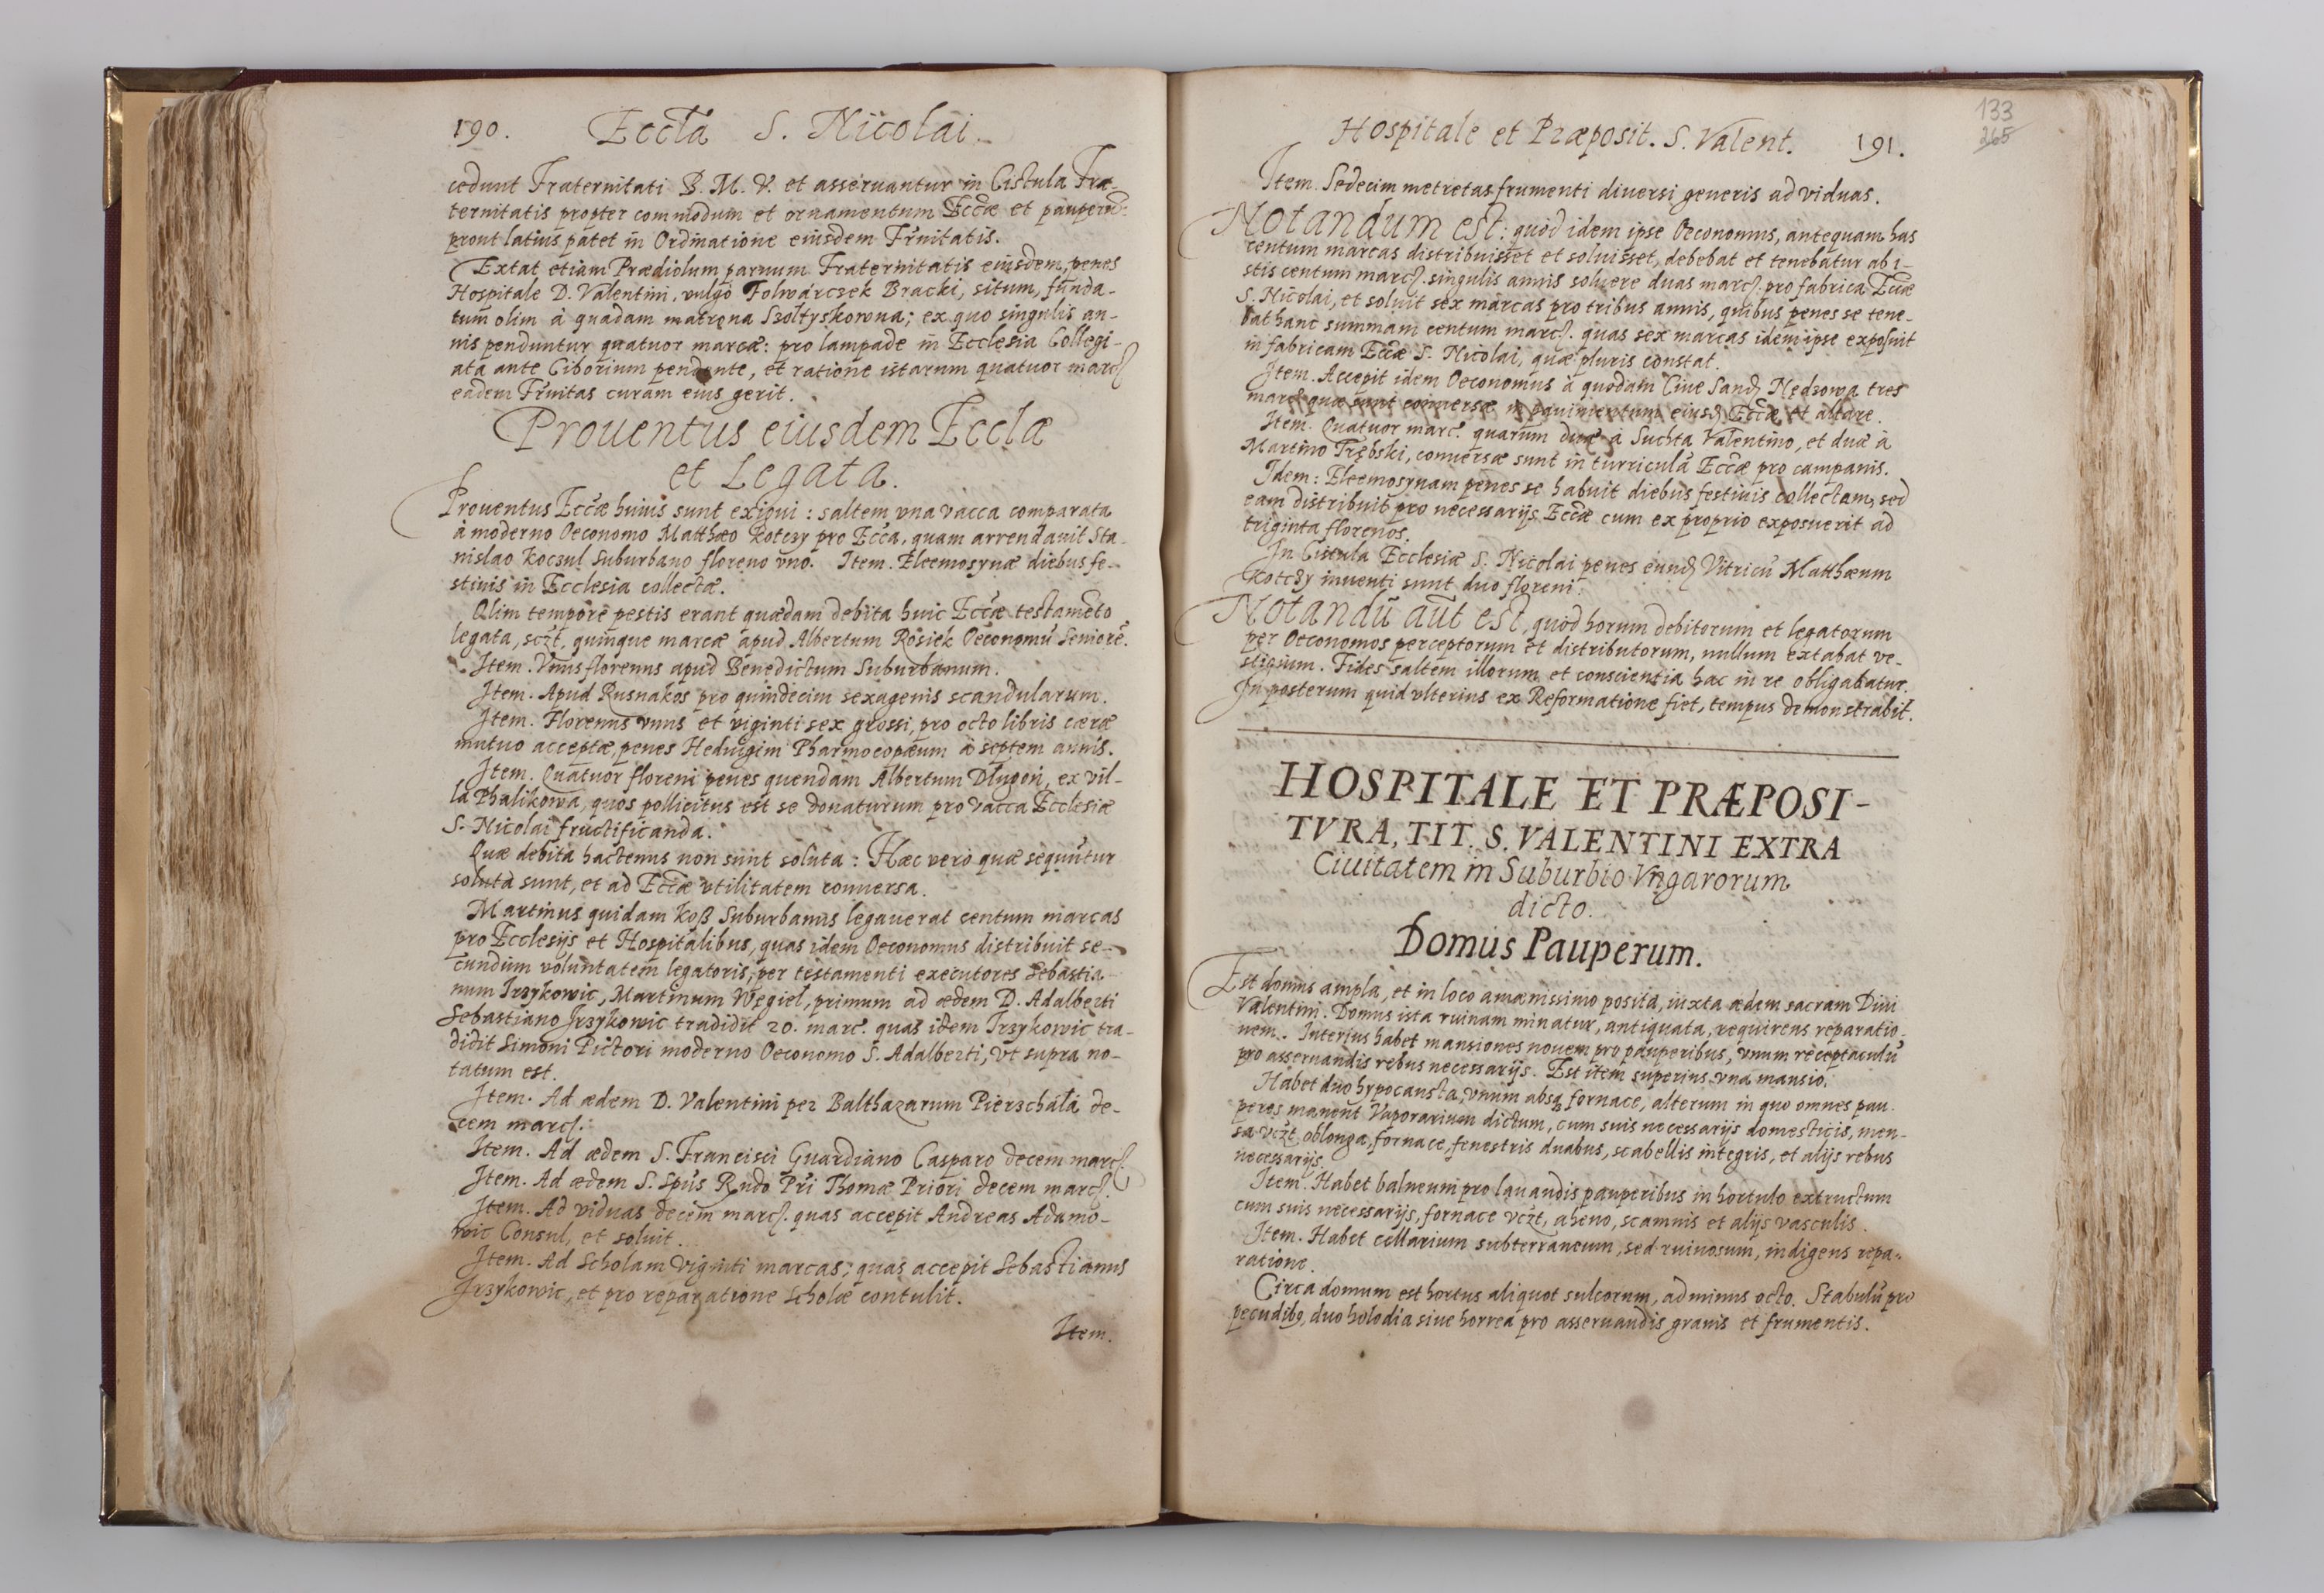 190. Eccła S. Nicolai.
cedunt Fraternitati B. M. V. et asseruantur in Cistula Fra-
ternitatis propter commodum et ornamentum Eccæ et pauperũ:
prout latius patet in Ordinatione eiusdem Frnitatis.
Extat etiam Prædiolum paruum Fraternitatis eiusdem, penes
Hospitale D. Valentini, vulgò Folwarcsek Bracki, situm, funda-
tum olim à quadam matrona Szoltyskowna; ex quo singulis an-
nis penduntur quatuor marcæ: pro lampade in Ecclesia Collegi-
ata ante Ciborium pendente, et ratione istarum quatuor marcȝ
eadem Frnitas curam eius gerit.
Prouentus eiusdem Ecclæ
et Legata.
Prouentus Eccæ huius sunt exigui: saltem vna vacca comparata
à moderno Oeconomo Matthæo Kotczy pro Ecca, quam arrendauit Sta-
nislao Koczul Suburbano floreno vno. Item. Eleemosynæ diebus fe-
stiuis in Ecclesia collectæ.
Olim tempore pestis erant quædam debita huic Eccæ testamẽto
legata, sczt, quinque marcæ apud Albertum Rosiek Oeconomũ Seniorẽ.
Item. Vnus florenus apud Benedictum Suburbanum.
Item. Apud Rusnakos pro quindecim sexagenis scandularum.
Item. Florenus vnus et viginti sex grossi, pro octo libris cæræ
mutuo acceptæ, penes Heduigim Pharmocopæum à septem annis.
Item. Quatuor floreni penes quendam Albertum Dlugoń, ex vil-
la Phalikowa, quos pollicitus est se donaturum pro vacca Ecclesiæ
S. Nicolai fructificanda.
Quæ debita hactenus non sunt soluta: Hæc verò quæ sequũtur
soluta sunt, et ad Eccæ vtilitatem conuersa.
Martinus quidam Koß Suburbanus legauerat centum marcas
pro Ecclesijs et Hospitalibus, quas idem Oeconomus distribuit se-
cundum voluntatem legatoris, per testamenti executores Sebastia-
num Irzykowic, Martinum Węgiel, primum ad ædem D. Adalberti
Sebastiano Irzykowic tradidit 20. marc. quas idem Irzykowic tra-
didit Simoni Pictori moderno Oeconomo S. Adalberti, vt supra no-
tatum est.
Item. Ad ædem D. Valentini per Balthazarum Pierzchała de-
cem marcȝ.
Item. Ad ædem S. Francisci Guardiano Casparo decem marcȝ.
Item. Ad ædem S. Spũs Rndo Pri Thomæ Priori decem marcȝ.
Item. Ad viduas decem marcȝ. quas accepit Andreas Adamo-
wic Consul, et soluit.
Item. Ad Scholam viginti marcas; quas accepit Sebastianus
Irzykowic, et pro reparatione Scholæ contulit.
Item.
133
265
Hospitale et Præposit. S. Valent. 191.
Item. Sedecim metretas frumenti diuersi generis ad viduas.
Notandum est: quòd idem ipse Oeconomus, antequam has
centum marcas distribuisset et soluisset, debebat et tenebatur ab i-
stis centum marcȝ. singulis annis soluere duas marcȝ. pro fabrica Eccæ
S. Nicolai, et soluit sex marcas pro tribus annis, quibus penes se tene-
bat hanc summam centum marcȝ. quas sex marcas idem ipse exposuit
in fabricam Eccæ S. Nicolai, quæ pluris constat.
Item. Accepit idem Oeconomus à quodam Ciue Sandȝ Nędzowa tres
marc. quæ sunt conuersæ in pauimentum eiusdȝ Eccæ et altare.
Item. Quatuor marc. quarum duæ à Suchta Valentino, et duæ à
Martino Trębski, conuersæ sunt in turriculã Eccæ pro campanis.
Idem: Eleemosynam penes se habuit diebus festiuis collectam, sed
eam distribuit pro necessarijs Eccæ cum ex proprio exposuerit ad
triginta florenos.
In Cistula Ecclesiæ S. Nicolai penes eundȝ Vitricũ Matthæum
Kotczy inuenti sunt duo floreni.
Notandũ aũt est, quòd horum debitorum et legatorum
per Oeconomos perceptorum et distributorum, nullum extabat ve-
stigium. Fides saltem illorum et conscientia hac in re obligabatur.
In posterum quid vlterius ex Reformatione fiet, tempus demonstrabit.
HOSPITALE ET PRÆPOSI-
TVRA, TIT. S. VALENTINI EXTRA
Ciuitatem in Suburbio Vngarorum
dicto.
Domus Pauperum.
Est domus ampla, et in loco amænissimo posita, iuxta ædem sacram Diui
Valentini. Domus ista ruinam minatur, antiquata, requirens reparatio-
nem. Interius habet mansiones nouem pro pauperibus, vnum receptaculũ
pro asseruandis rebus necessarijs. Est item superius vna mansio.
Habet duo hypocausta, vnum absq fornace, alterum in quo omnes pau-
peres manent Vaporarium dictum, cum suis necessarijs domesticis, men-
sa vczt, oblonga, fornace, fenestris duabus, scabellis integris, et alijs rebus
necessarijs.
Item. Habet balneum pro lauandis pauperibus in hortulo extructum
cum suis necessarijs, fornace vczt, aheno, scamnis et alijs vasculis.
Item. Habet cellarium subterraneum, sed ruinosum, indigens repa-
ratione.
Circa domum est hortus aliquot sulcorum, ad minus octo. Stabulũ pro
pecudibȝ, duo holodia siue horrea pro asseruandis granis et frumentis.